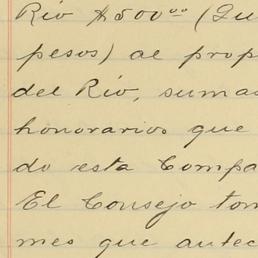 Rio $500.00 (Qui
pesos) al prop
del Rio, suma
honorarios que
do esta Compa
El Consejo tom
mes que antec